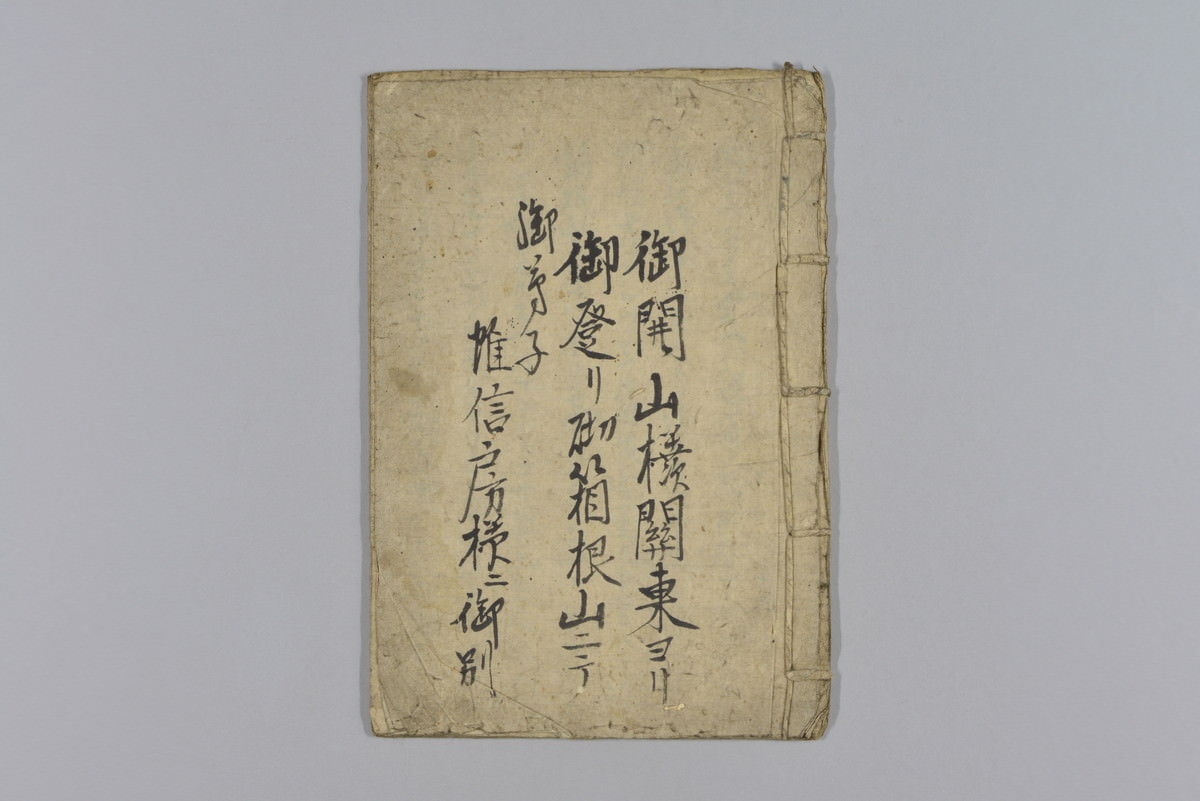 御開山様關東ヨリ
御登リ砌箱根山ニテ
御弟子
惟信房様ニ御別